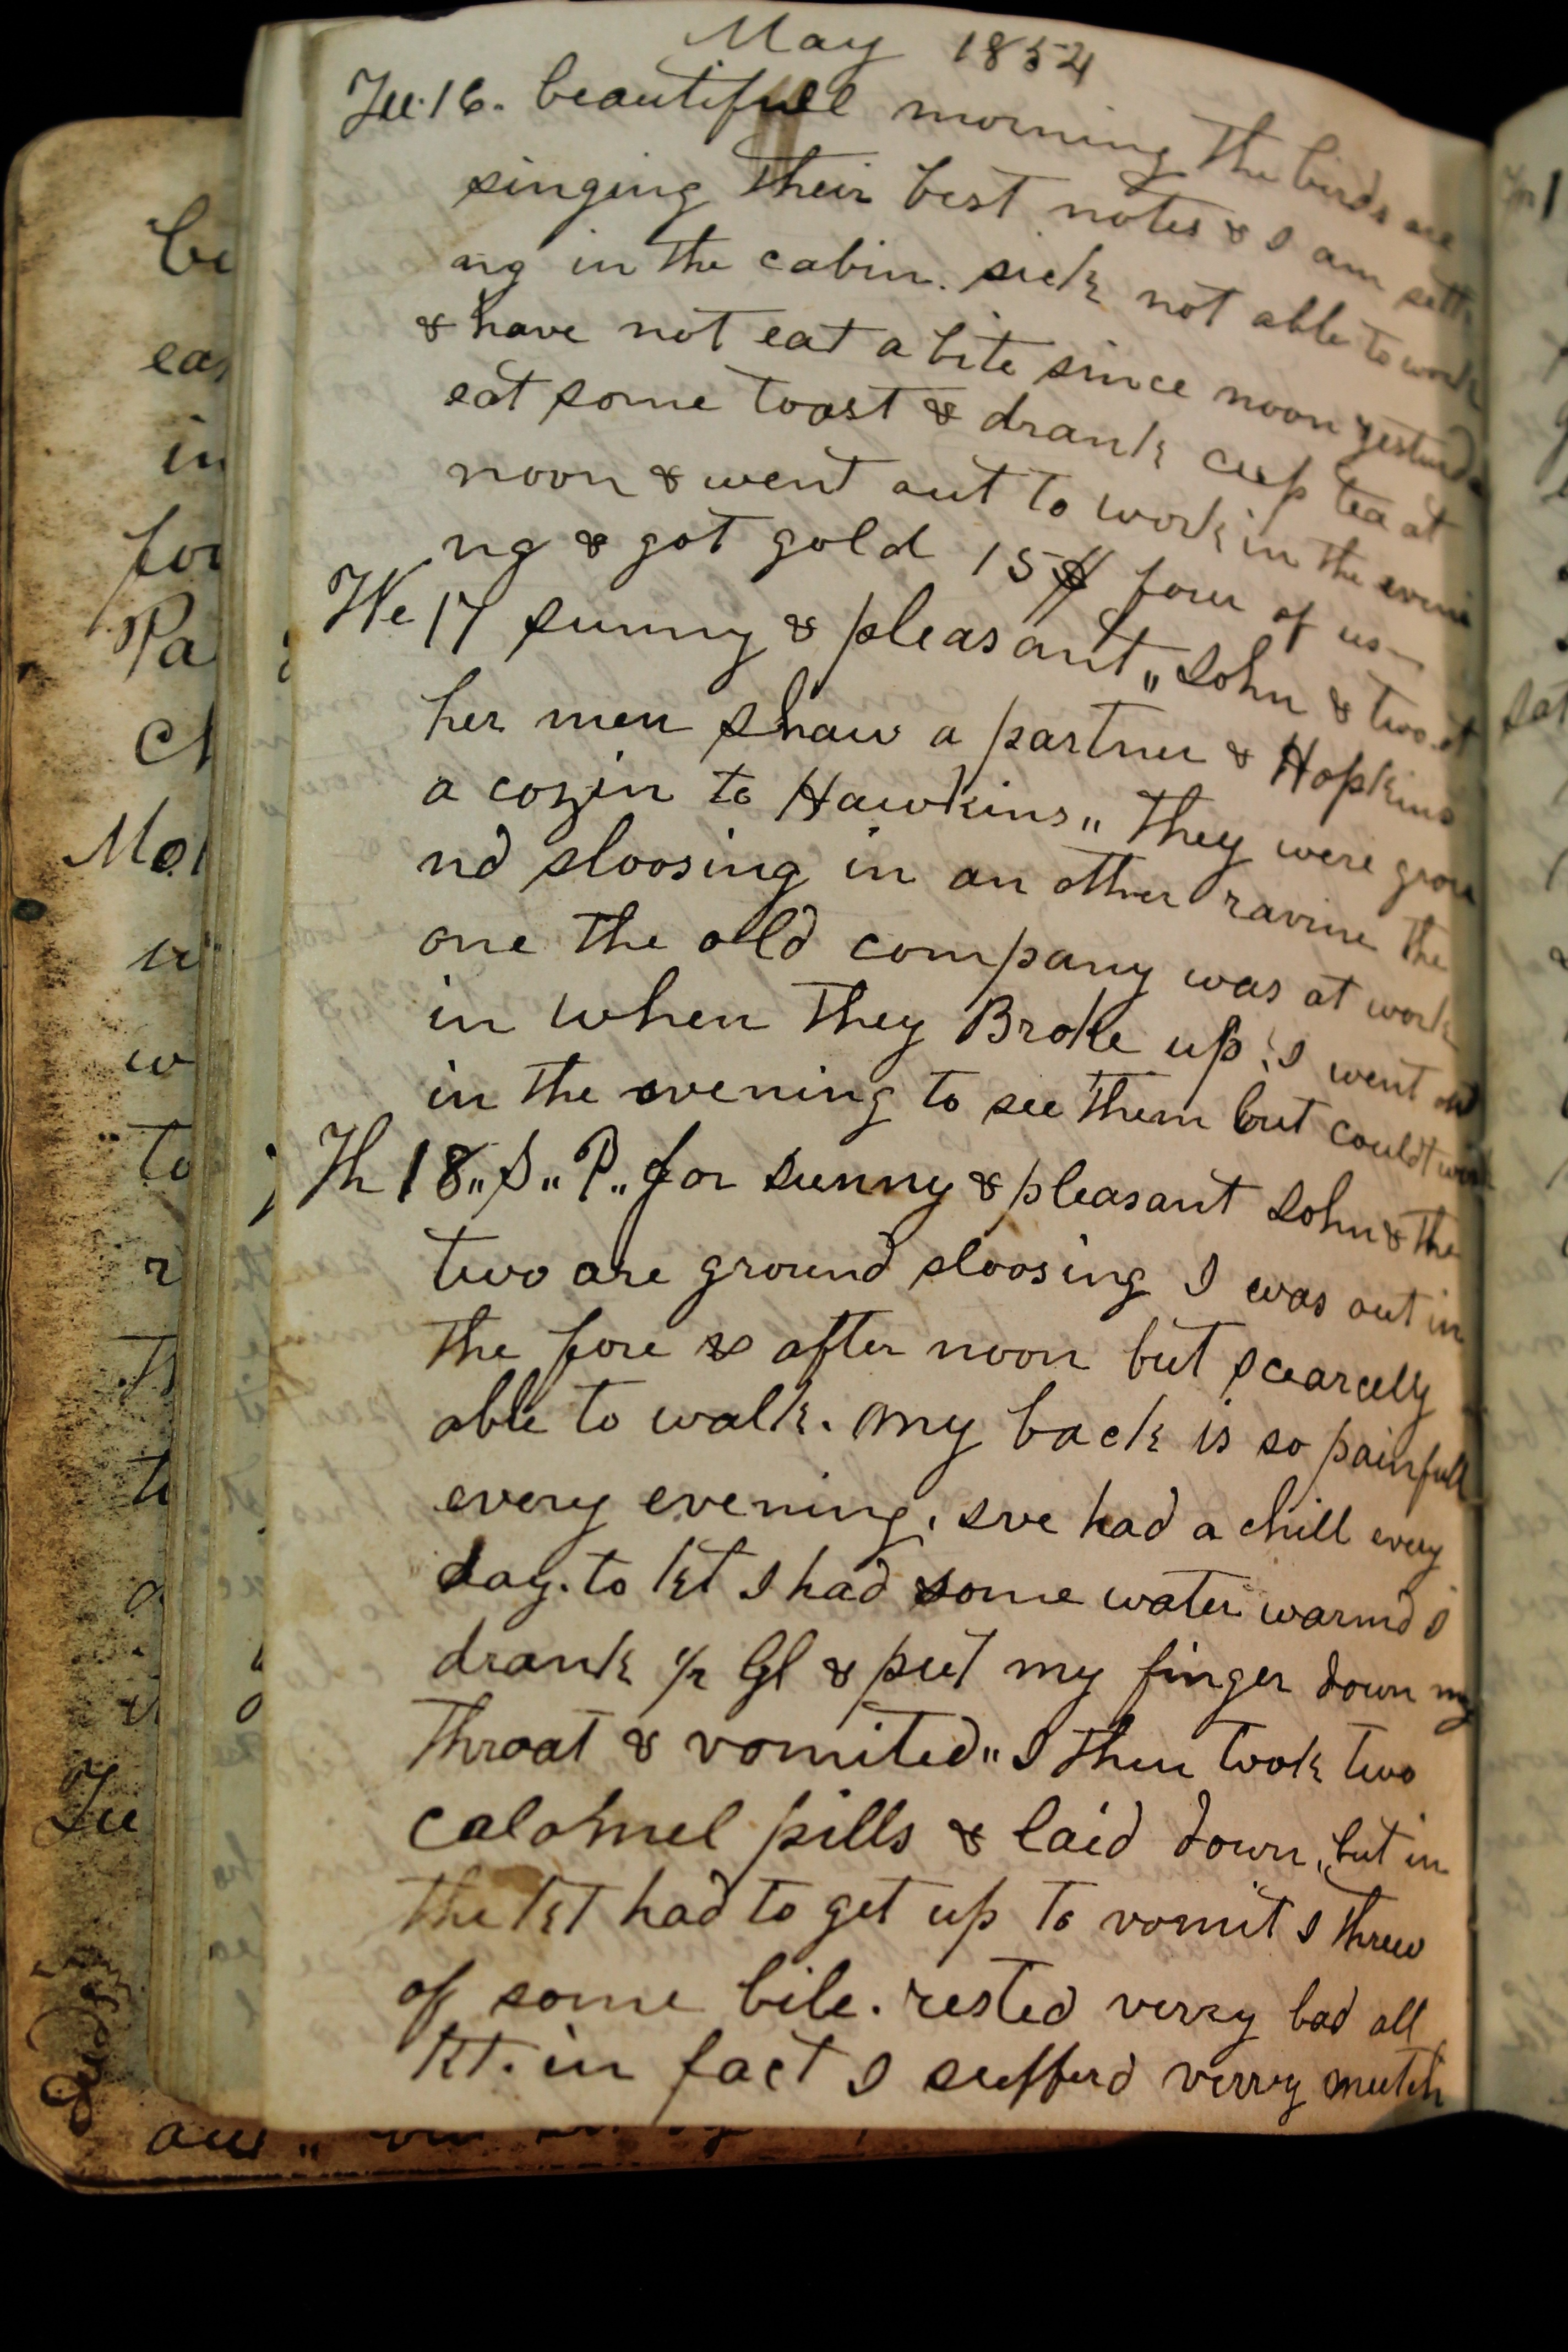 May 1854
Tu. 16. beautifull morning The birds are
singing Their best notes & I am sett
ing in the cabin. sick not able to work
& have not eat a bite since noon yesturda
eat some toast & drank cup tea at
noon & went out to work in the eveni
ng & got gold 15 $ four of us—
We 17 sunny & pleasant „ John & two ot
her men shaw a partner & Hopkins
a cozin to Hawkins „ They were grou
nd sloosing in an other ravine The
one the old company was at work
in when They Broke up : I went out
in the evening to see Them but couldt work
Th 18 „ S „ P „ for sunny & pleasant John & the
two are ground sloosing I was out in
The fore & after noon but scearcelly
able to walk. my back is so painfull
every evening, Ive had a chill every
day. to Nt I had some water warmd I
drank ½ Gl & put my finger down my
Throat & vomited „ I Then took two
calomel pills & laid down „ but in
The Nt had to get up to vomit I threw
of some bile. rested verry bad all
Nt. in fact I sufferd verry mutch
be
ea
in
for
Pa
Mo
w
to
Tu